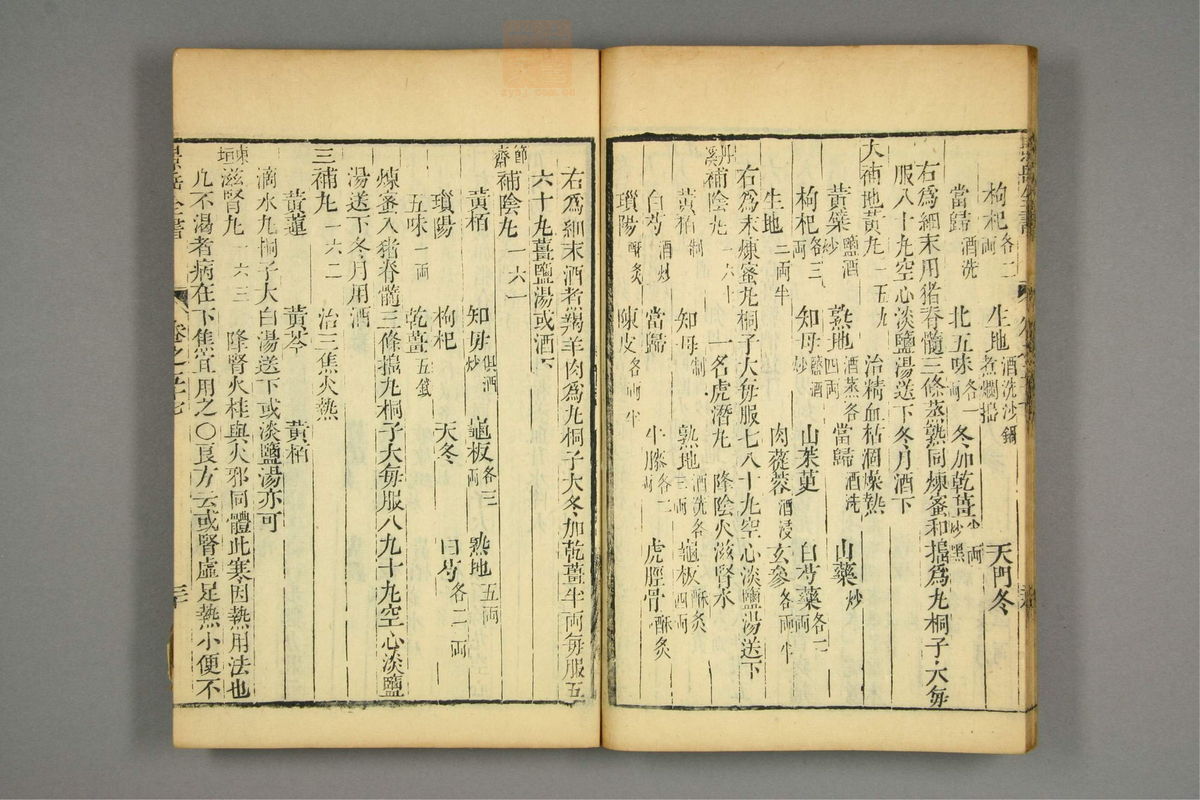 枸杞各二両　生地酒洗沙鍋煮爛搗　天門冬
當歸酒洗　北五味各一両　冬加乾薑炒黑
右為細末用猪脊髓三條蒸熟同煉蜜和搗為丸桐子大毎
服八十丸空心淡鹽湯送下冬月酒下
大補地黃丸一五九　治精血枯涸燥熱
黃蘗鹽酒炒　熟地酒蒸各四両　當歸酒洗　山藥炒
枸杞各三両　知母鹽酒炒　山茱萸　白芍藥各二両
生地二両半　肉蓯蓉酒浸　玄參各両半
右為末煉蜜丸桐子大毎服七八十丸空心淡鹽湯送下
丹溪補陰丸一六十　一名虎潛丸　降陰火滋腎水
黃栢制　知母制　熟地酒洗各三両　龜板酥炙四両
白芍酒炒　當歸　牛膝各二両　虎脛骨酥炙
瑣陽酥炙　陳皮各両半
右為細末酒煮羯羊肉為丸桐子大冬加乾薑半両毎服五
六十丸薑鹽湯或酒下
節齋補陰丸一六一
黃栢　知母俱酒炒　龜板各三両　熟地五両
瑣陽　枸杞　天冬　白芍各二両
五味一両　乾薑五錢
煉蜜入猪脊髓三條搗丸桐子大毎服八九十丸空心淡鹽
湯送下冬月用酒
三補丸一六二　治三焦火熱
黃蓮　黃芩　黃栢
滴水丸桐子大白湯送下或淡鹽湯亦可
東垣滋腎丸一六三　降腎火桂與火邪同體此寒因熱用法也
凡不渴者病在下焦宜用之○良方云或腎虛足熱小便不
卷之五十七